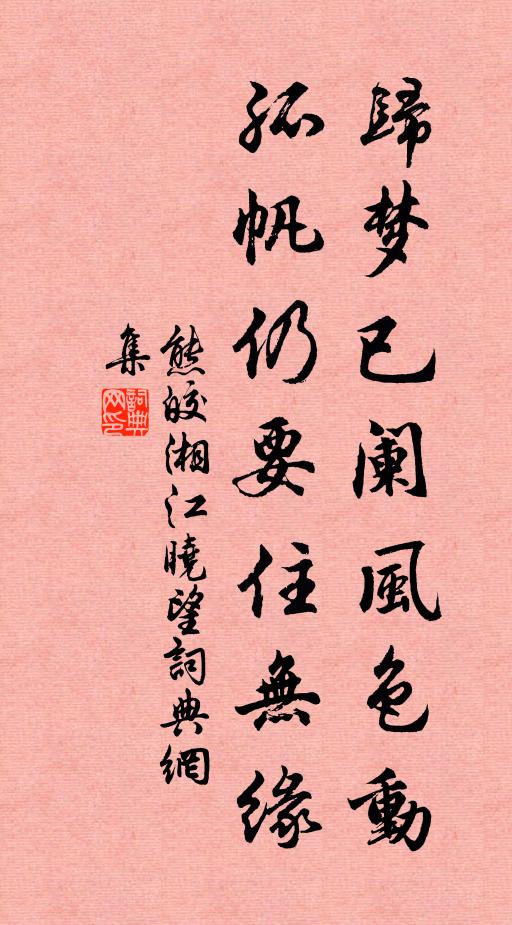 歸梦已阑風色動
孤帆仍要住無緣
熊皎湘江曉望詞典網
集
詞典
网印